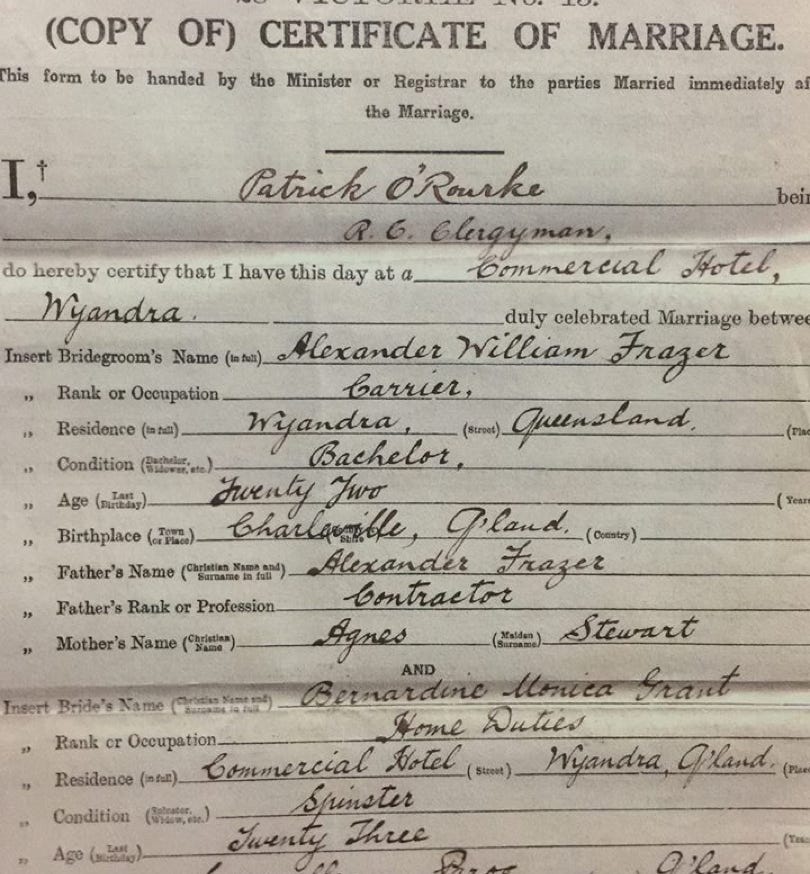 28 VICTORIÆ No. 15.
(COPY OF) CERTIFICATE OF MARRIAGE.
This form to be handed by the Minister or Registrar to the parties Married immediately af
the Marriage.
I,† Patrick O'Rourke bein
R. C. Clergyman,
do hereby certify that I have this day at a Commercial Hotel,
Wyandra. duly celebrated Marriage betwee
Insert Bridegroom's Name (in full) Alexander William Frazer
„ Rank or Occupation Carrier,
„ Residence (in full) Wyandra, (Street) Queensland. (Plac
„ Condition (Bachelor, Widower, etc.) Bachelor,
„ Age (Last Birthday) Twenty Two (Years
„ Birthplace (Town or Place) Charleville, Q'land. (Country)
„ Father's Name (Christian Name and Surname in full) Alexander Frazer
„ Father's Rank or Profession Contractor
„ Mother's Name (Christian Name) Agnes (Maiden Surname) Stewart
AND
Insert Bride's Name (Christian Name and Surname in full) Bernardine Monica Grant
„ Rank or Occupation Home Duties
„ Residence (in full) Commercial Hotel (Street) Wyandra, Q'land. (Place
„ Condition (Spinster, Widow, etc.) Spinster
„ Age (Last Birthday) Twenty Three (Year
Q'land